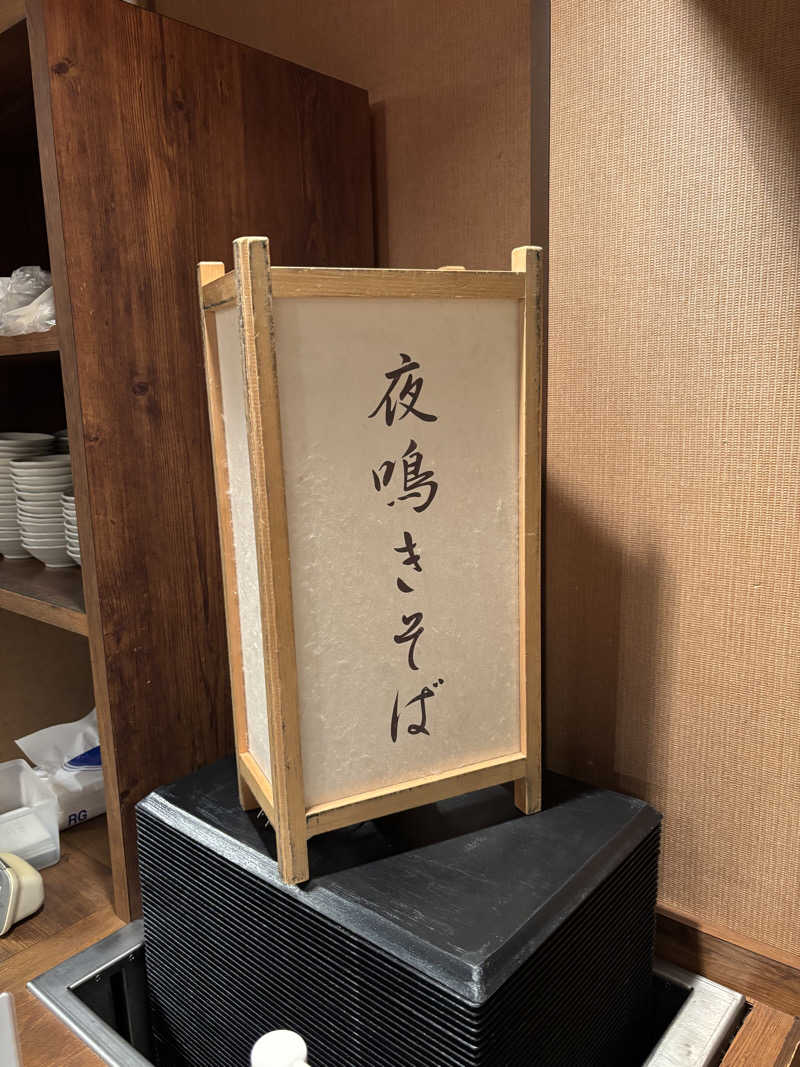 夜鳴きそば
RG